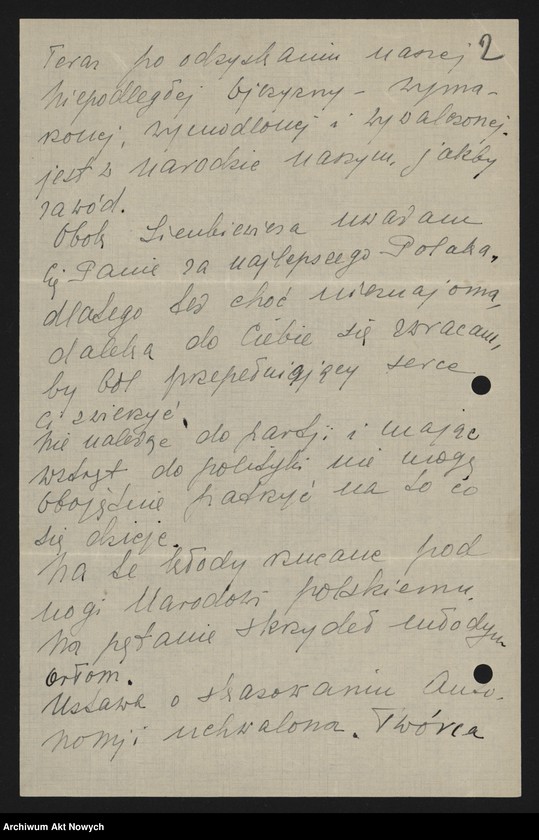 2
Teraz po odzyskaniu naszej
Niepodległej Ojczyzny – wyma-
rzonej, wymodlonej i wywalczonej.
jest w narodzie naszym, jakby
zawód.
Obok Sienkiewicza uważam
Cię Panie za najlepszego Polaka,
dlatego też choć nieznajoma,
daleka do Ciebie się zwracam,
by ból przepełniający serce
Ci zwierzyć.
Nie należąc do partji i mając
wstręt do polityki nie mogę
obojętnie patrzyć na to co
się dzieje.
Na te kłody rzucane pod
nogi Narodowi polskiemu.
Na pętanie skrzydeł młodym
orłom.
Ustawa o skasowaniu Auto-
nomji uchwalona. Twórca
Archiwum Akt Nowych